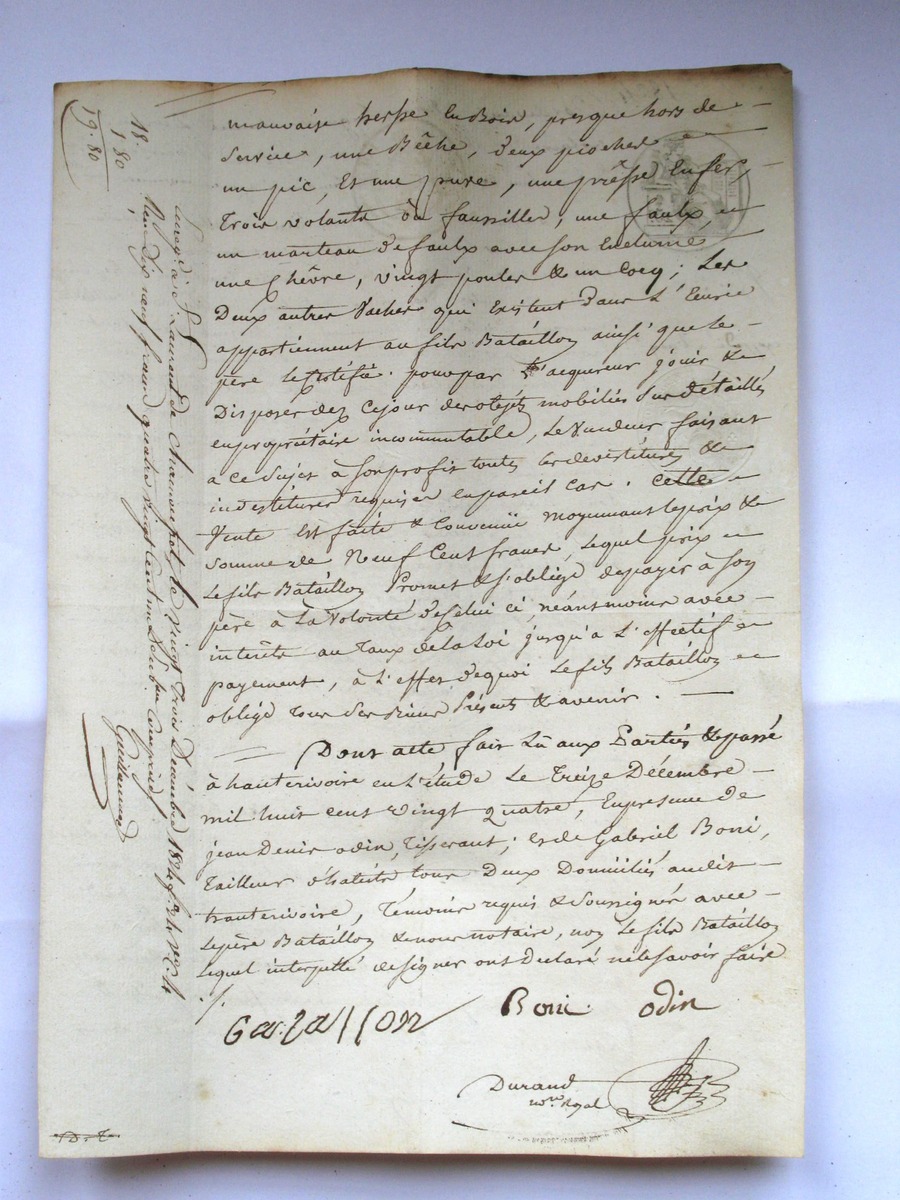 mauvaise herse en Bois, presque hors de
Service, une Bêche, deux pioches
un pic, Et une
Trois volants ou faussilles, une faulx,
un marteau de faulx avec son Enclume
une Chêvre, vingt poules & un Cocq; Les
Deux autres Vaches qui Existent dans L'Ecurie
appartiennent au fils Batâillon ainsi que le
père le Certifie. pour par l'acquereur jouir &
Disposer dez Cejour des objets mobiliés Sus détaillés
en propriétaire incommutable, Le Vendeur faisant
à ce Sujet à son profit toutes les devestitures &
investitures requises en pareil Cas. Cette
Vente Est faite & Convenüe moyennant le prix &
Somme de Neuf Cent francs, Lequel prix
Le fils Batâillon Promet & s'oblige de payer à Son
père à La Volonté de Celui ci, néantmoins avec
intérêts au Taux de la Loi jusqu'à L'effectif
payement, à L'effet de quoi Le fils Batâillon
oblige Tous Ses Biens Présents & avenir.
Dont acte fait Lû aux Parties & passé
à hauterivoire en L'étude Le Treize Décembre
mil huit cent vingt quatre, En presence de
jean Denis odin, Tisserant; et de Gabriel Boni,
Tailleur d'habits tous Deux Domiciliés audit
hauterivoire, Témoins requis & Soussignés avec
Le père Batâillon & nous notaire, non Le fils Batâillon
Lequel interpellé de signer ont Declaré ne le Savoir faire
./.
Boni odin
Durand
no.re Royal
18.
1 80
19. 80
à St Laurent de Chamousset le vingt trois Décembre 1824
Reçu Dix neuf francs quatre vingt centimes